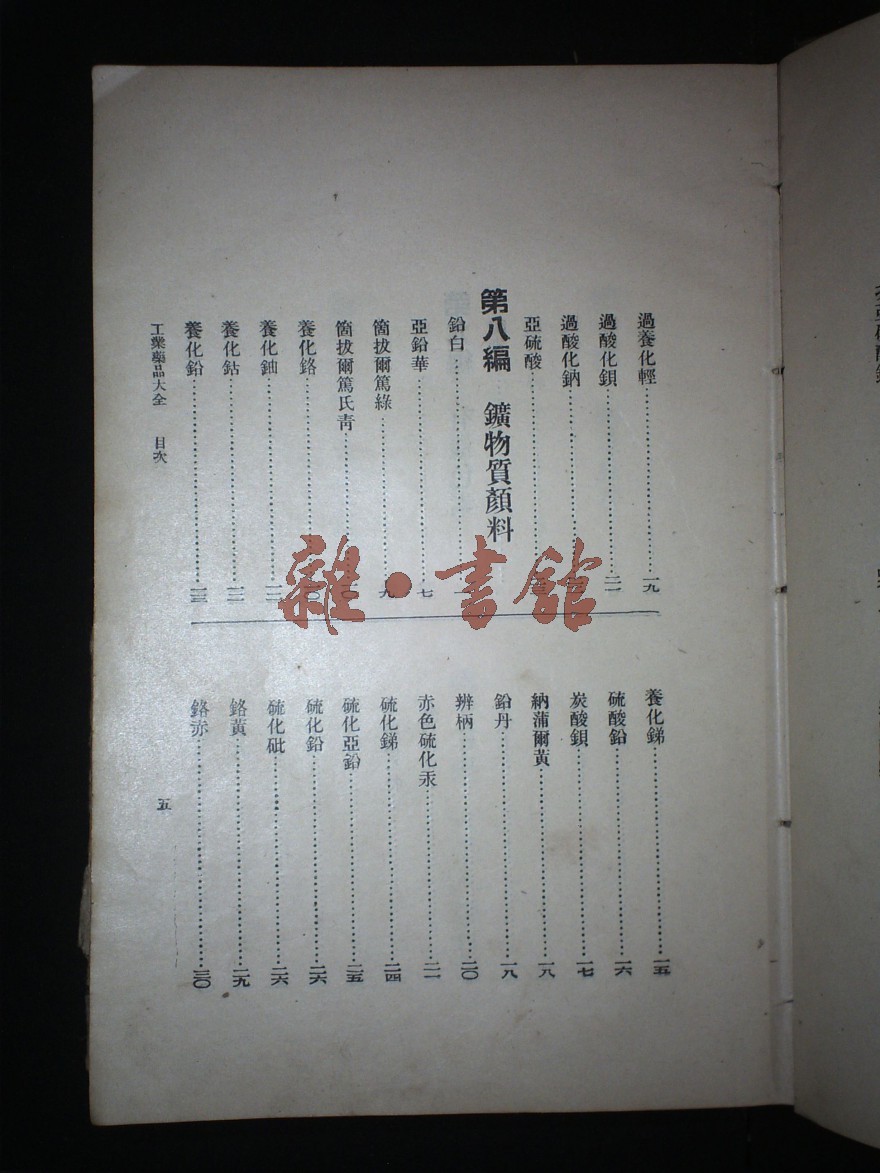 過養化輕……一九
過酸化鋇……二一
過酸化鈉
亞硫酸
第八編 鑛物質顏料
鉛白……一
亞鉛華……七
箇拔爾篤綠……九
箇拔爾篤氏靑……一〇
養化鉻……一〇
養化鈾
養化鈷
養化鉛
養化銻……一五
硫酸鉛……一六
炭酸鋇……一七
納蒲爾黃……一八
鉛丹……一八
辨柄……二〇
赤色硫化汞……二一
硫化銻……二四
硫化亞鉛……二五
硫化鉛……二六
硫化砒……二六
鉻黃……二九
鉻赤……三〇
工業藥品大全 目次 五
雜·書館